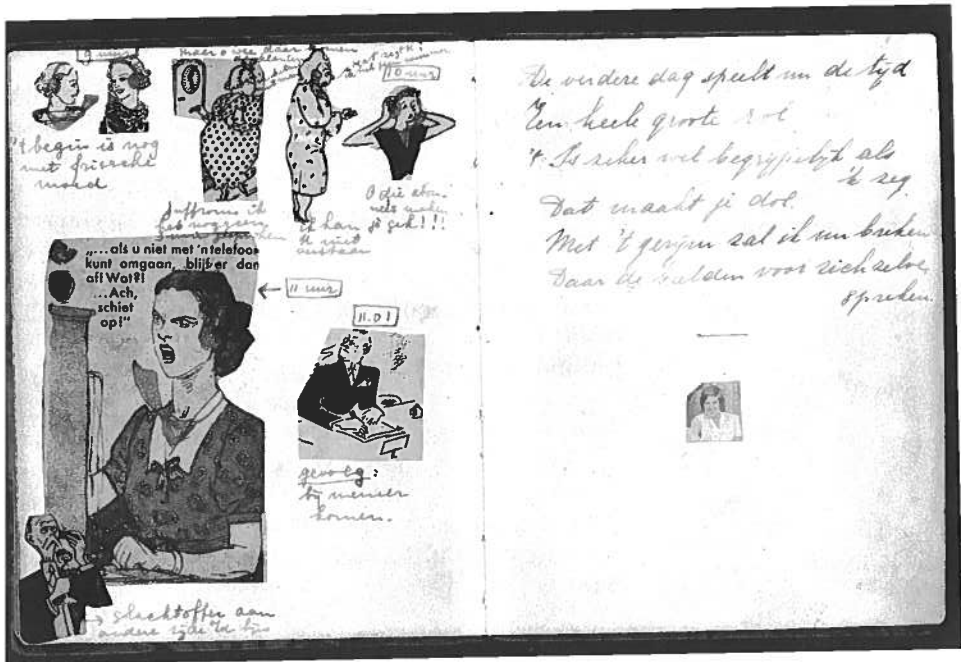 9 uur
't begin is nog
met frissche
moed
maar o wee daar komen
10 uur
Juffrouw ik
heb nog geen
ik kan
't niet
O die abon-
nés maken
je gek!!!
„...als u niet met 'n telefoon
kunt omgaan, blijf er dan
af! Wat?!
...Ach,
schiet
op!"
11 uur
11.01
gevolg:
bij meneer
komen.
slachtoffer aan
andere zijde v/d lijn
De verdere dag speelt nu de tijd
Een heele groote rol
't Is zeker wel begrijpelijk als
'k zeg
Dat maakt je dol.
Met 't gerijm zal ik nu breken
Daar de beelden voor zich zelve
spreken.